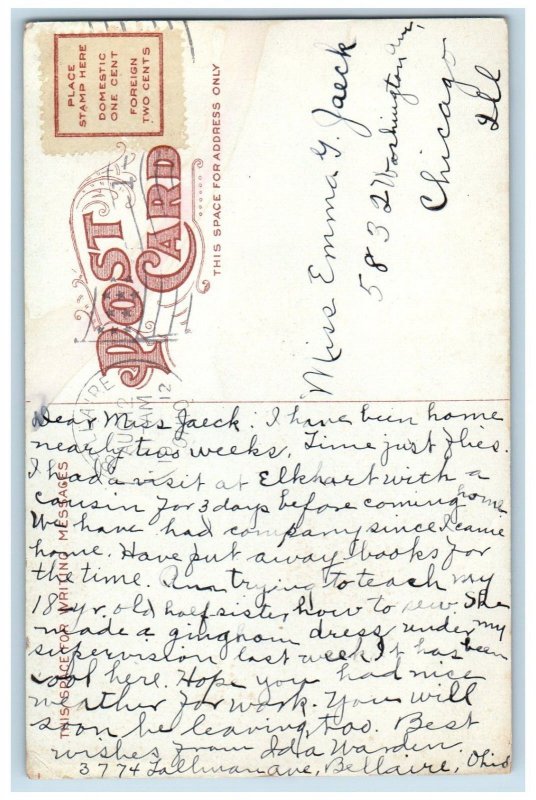 PLACE
STAMP HERE
DOMESTIC
ONE CENT
FOREIGN
TWO CENTS
POST
CARD
THIS SPACE FOR ADDRESS ONLY
Miss Emma G. Jaeck
5832 Washington Av.,
Chicago
Ill
THIS SPACE FOR WRITING MESSAGES
Dear Miss Jaeck: I have been home
nearly two weeks. Time just flies.
I had a visit at Elkhart with a
cousin for 3 days before coming home
We have had company since I came
home. Have put away books for
the time. Am trying to teach my
18 yr. old half sister how to sew. She
made a gingham dress under my
supervision last week. It has been
cool here. Hope you had nice
weather for work. You will
soon be leaving, too. Best
wishes from Ida Warden.
3774 Tallman ave, Bellaire, Ohio